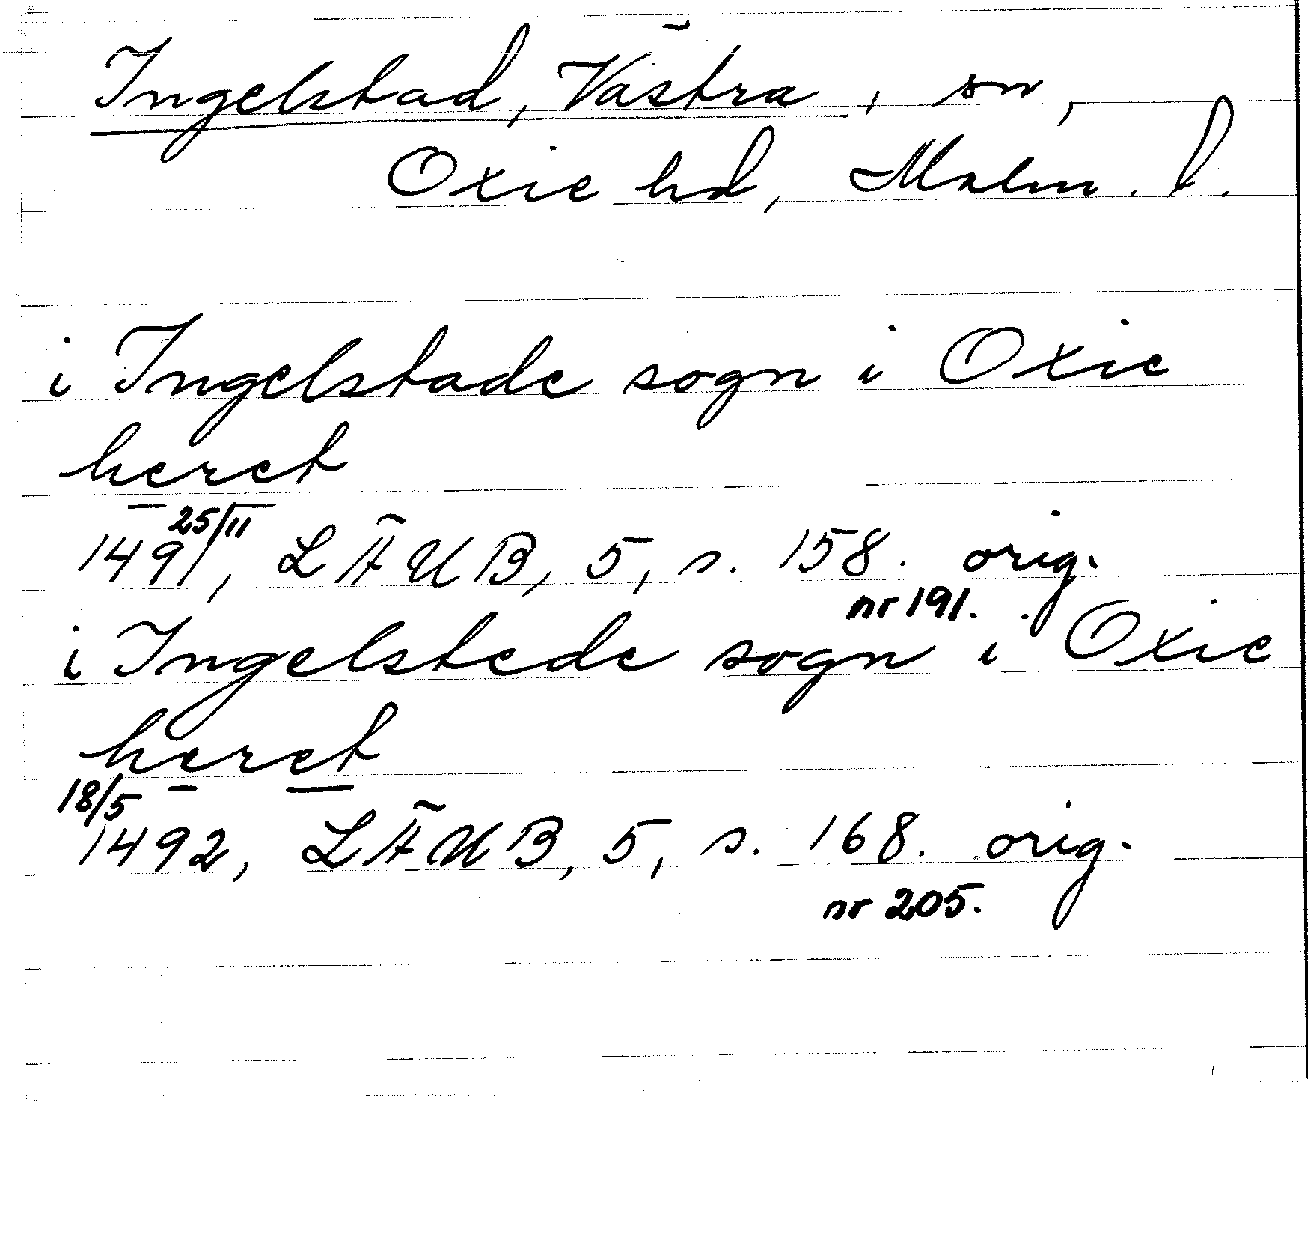 Ingelstad, Västra, sn,
Oxie hd, Malm. l.
i Ingelstade sogn i Oxie
heret
25/11
1491, LÄUB, 5, s. 158. orig.
nr 191.
i Ingelstede sogn i Oxie
heret
18/5
1492, LÄUB, 5, s. 168. orig.
nr 205.